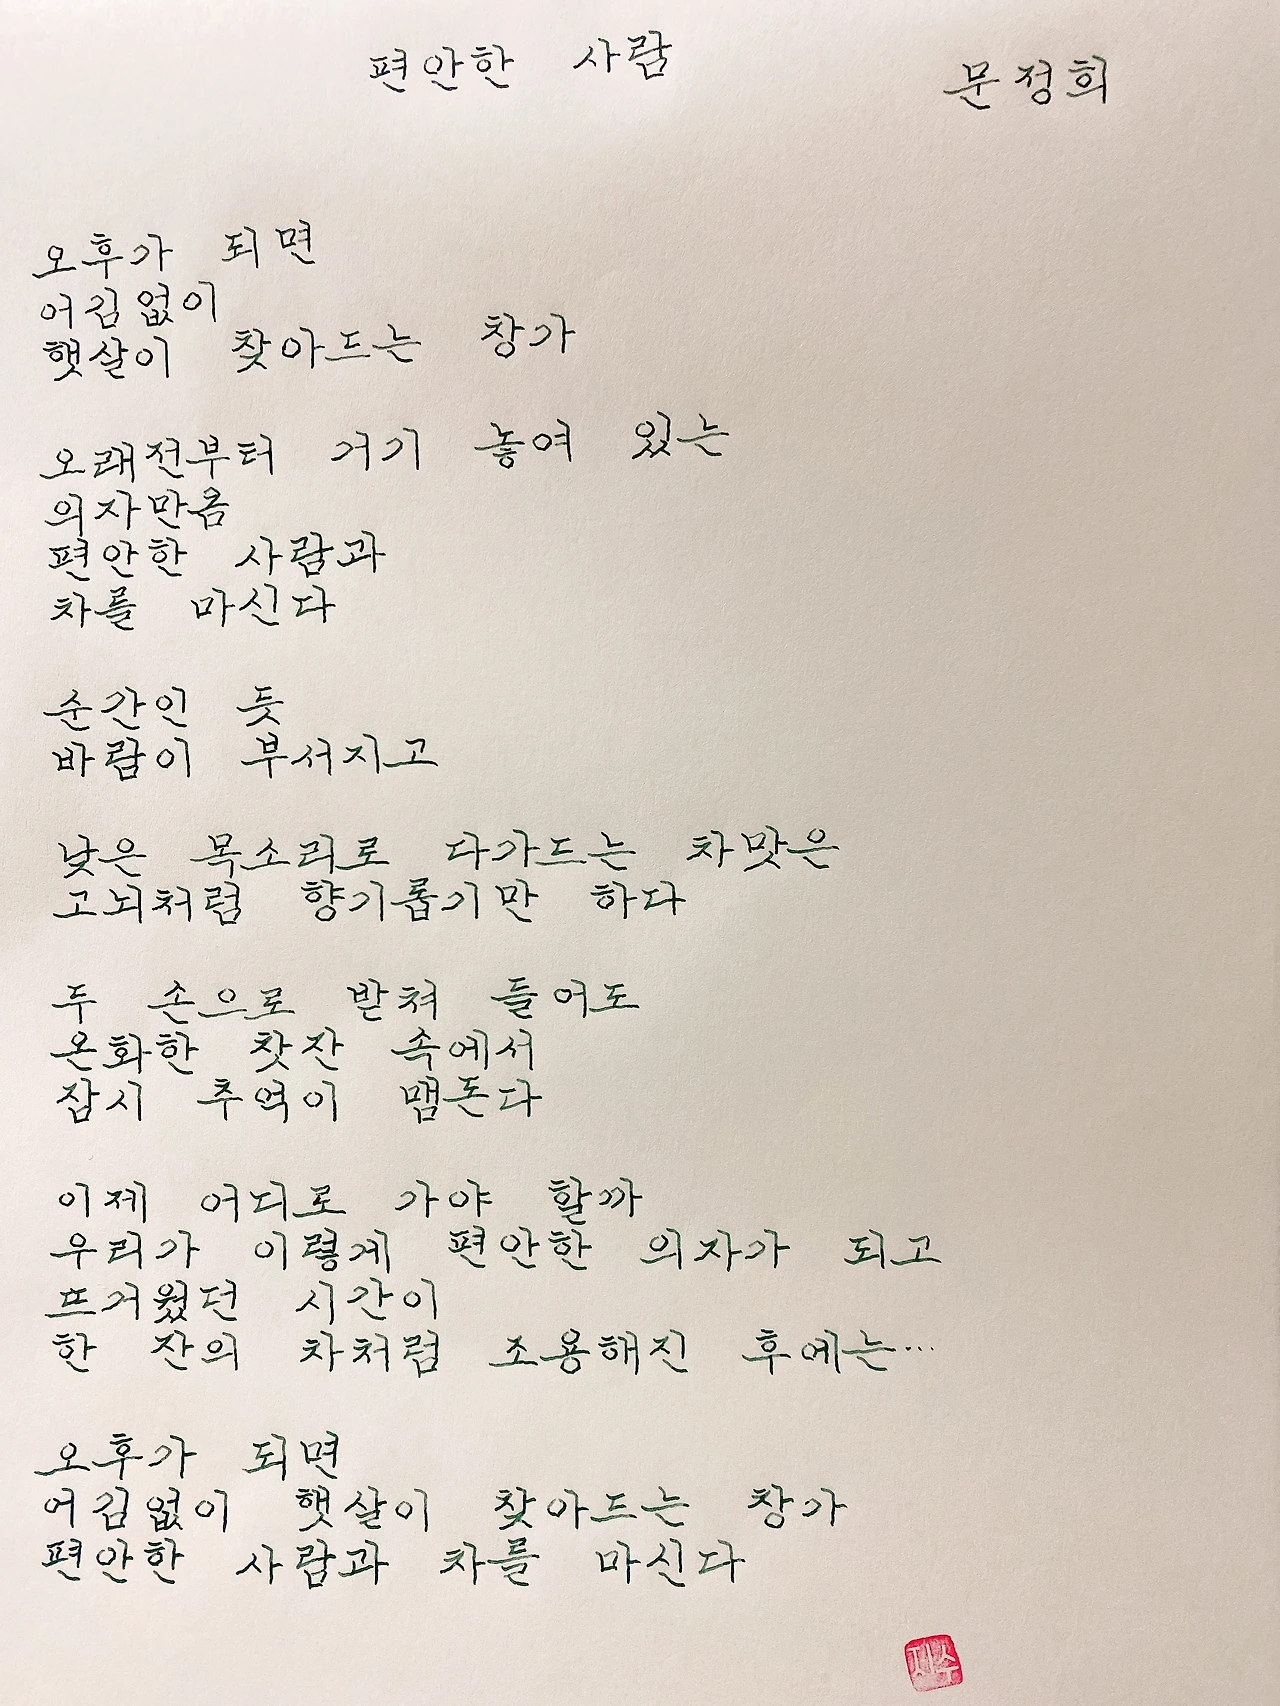 편안한 사람
문정희
오후가 되면
어김없이
햇살이 찾아드는 창가
오래전부터 거기 놓여 있는
의자만큼
편안한 사람과
차를 마신다
순간인 듯
바람이 부서지고
낮은 목소리로 다가드는 차맛은
고뇌처럼 향기롭기만 하다
두 손으로 받쳐 들어도
온화한 찻잔 속에서
잠시 추억이 맴돈다
이제 어디로 가야 할까
우리가 이렇게 편안한 의자가 되고
뜨거웠던 시간이
한 잔의 차처럼 조용해진 후에는…
오후가 되면
어김없이 햇살이 찾아드는 창가
편안한 사람과 차를 마신다